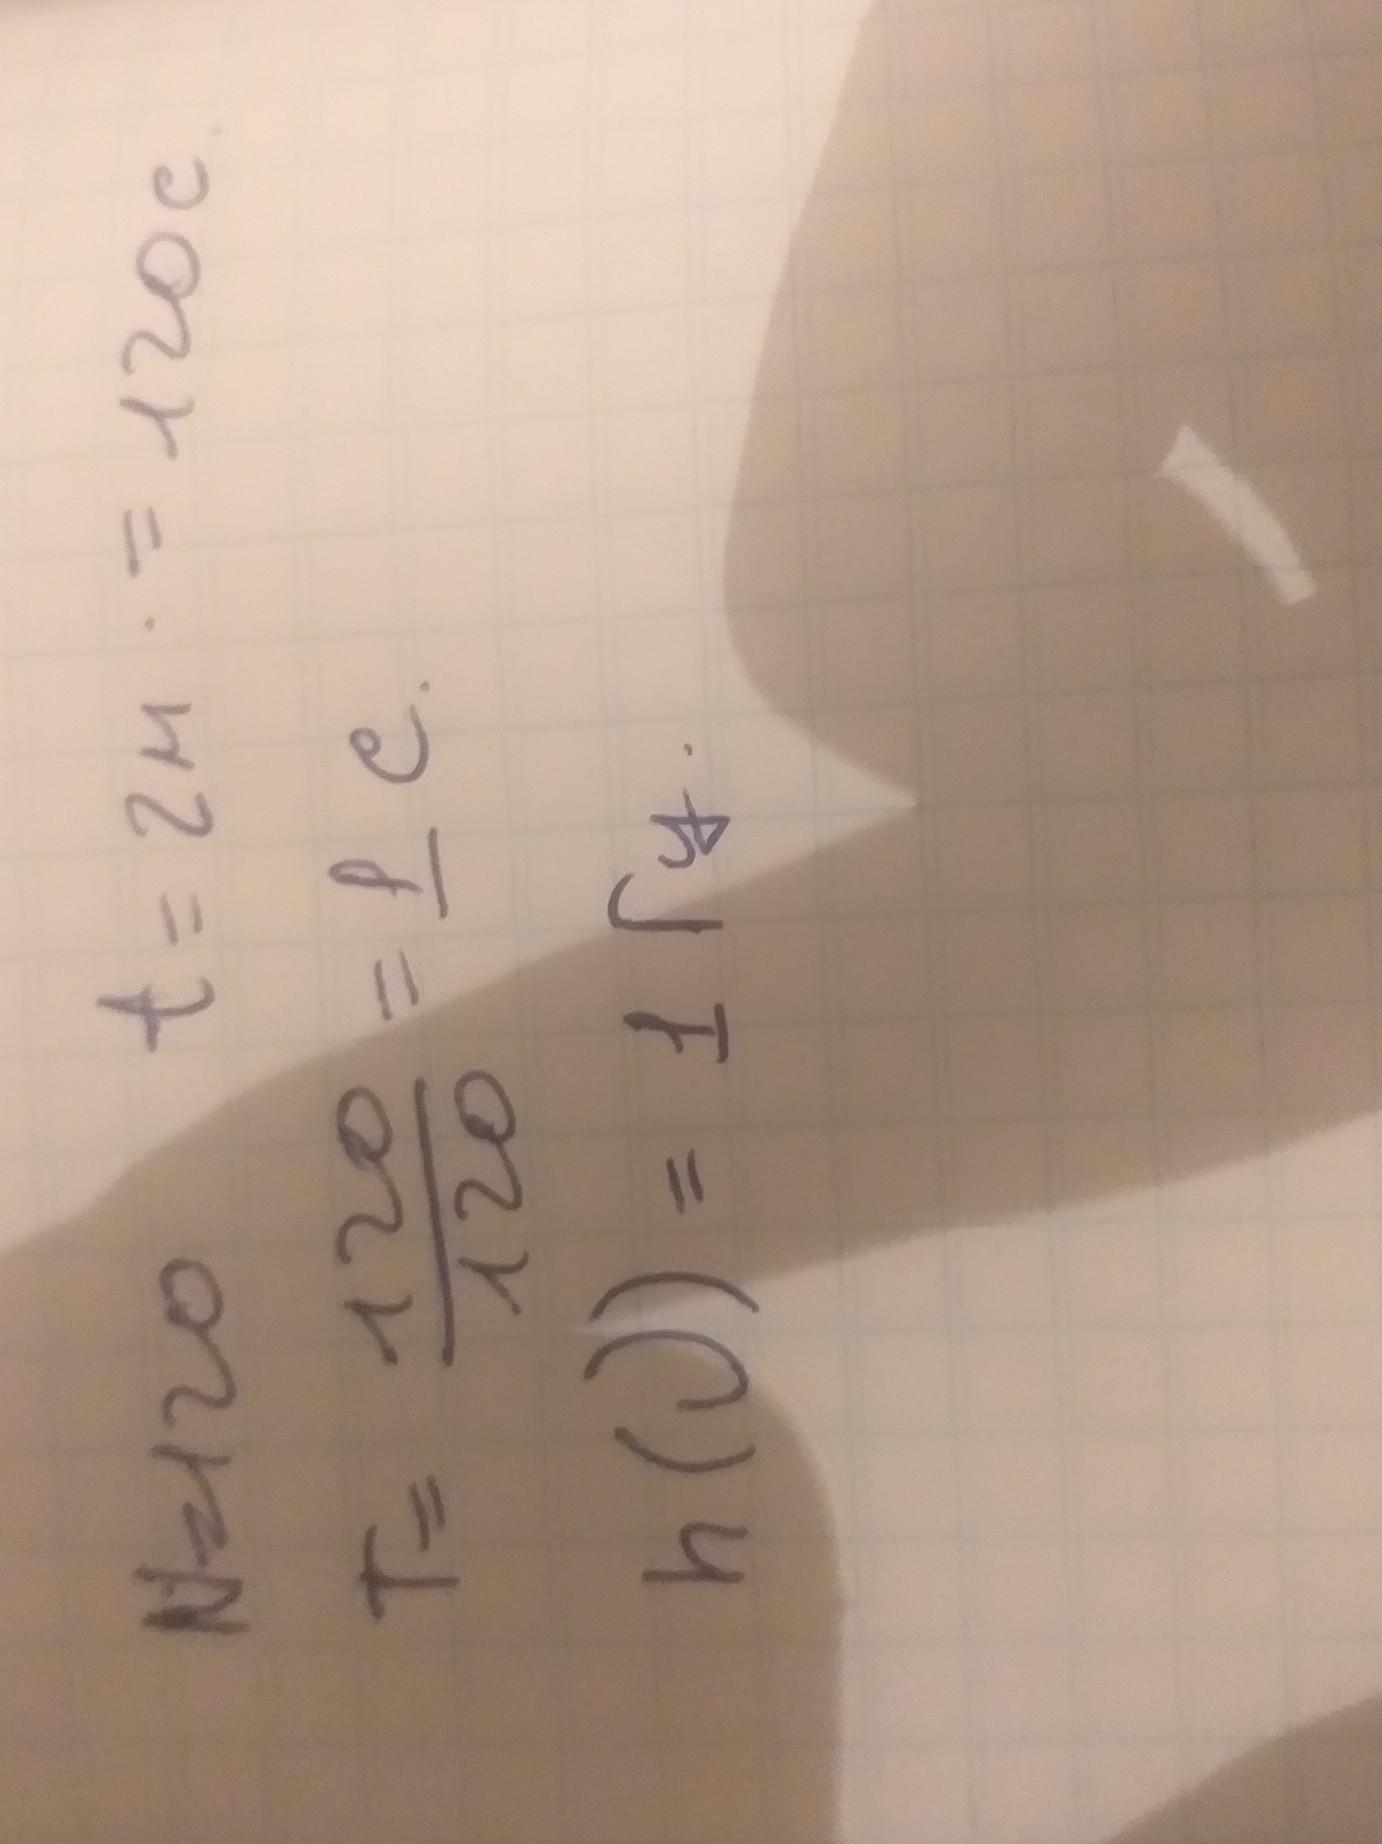 N=120 t=2м.=120с.
T= 120/120 = 1 с.
n(υ) = 1 Гц.